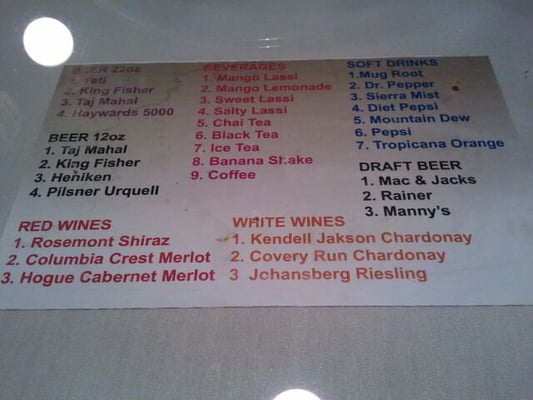 BEER 22oz
1. Yeti
2. King Fisher
3. Taj Mahal
4. Haywards 5000
BEER 12oz
1. Taj Mahal
2. King Fisher
3. Heniken
4. Pilsner Urquell
BEVERAGES
1. Mango Lassi
2. Mango Lemonade
3. Sweet Lassi
4. Salty Lassi
5. Chai Tea
6. Black Tea
7. Ice Tea
8. Banana Shake
9. Coffee
SOFT DRINKS
1.Mug Root
2. Dr. Pepper
3. Sierra Mist
4. Diet Pepsi
5. Mountain Dew
6. Pepsi
7. Tropicana Orange
DRAFT BEER
1. Mac & Jacks
2. Rainer
3. Manny's
RED WINES
1. Rosemont Shiraz
2. Columbia Crest Merlot
3. Hogue Cabernet Merlot
WHITE WINES
1. Kendell Jakson Chardonay
2. Covery Run Chardonay
3 Johansberg Riesling